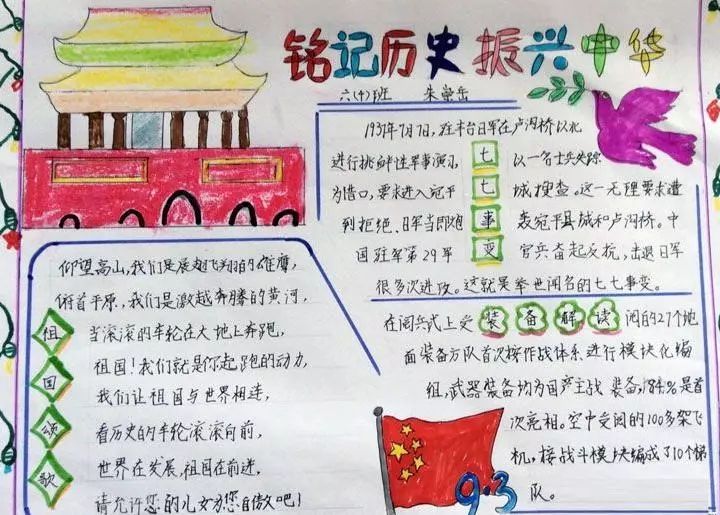 铭记历史振兴中华
六(十)班 朱莹岳
1937年7月7日,驻丰台日军在卢沟桥以北
进行挑衅性军事演习 以一名士兵失踪
为借口,要求进入宛平 城搜查。这一无理要求遭
到拒绝,日军当即炮 轰宛平县城和卢沟桥。中
国驻军第29军 官兵奋起反抗,击退日军
很多次进攻。这就是举世闻名的七七事变。
七七事变
仰望高山,我们是展翅飞翔的雄鹰,
俯首平原,我们是激越奔腾的黄河,
当滚滚的车轮在大地上奔跑,
祖国!我们就是你起跑的动力,
我们让祖国与世界相连,
看历史的车轮滚滚向前,
世界在发展,祖国在前进,
请允许您的儿女为您自傲吧!
祖国颂歌
在阅兵式上受 装备解读 阅的27个地
面装备方队首次按作战体系进行模块化编
组,武器装备均为国产主战装备,84%是首
次亮相。空中受阅的100多架飞
机,按战斗模块编成了10个梯
队。
9·3